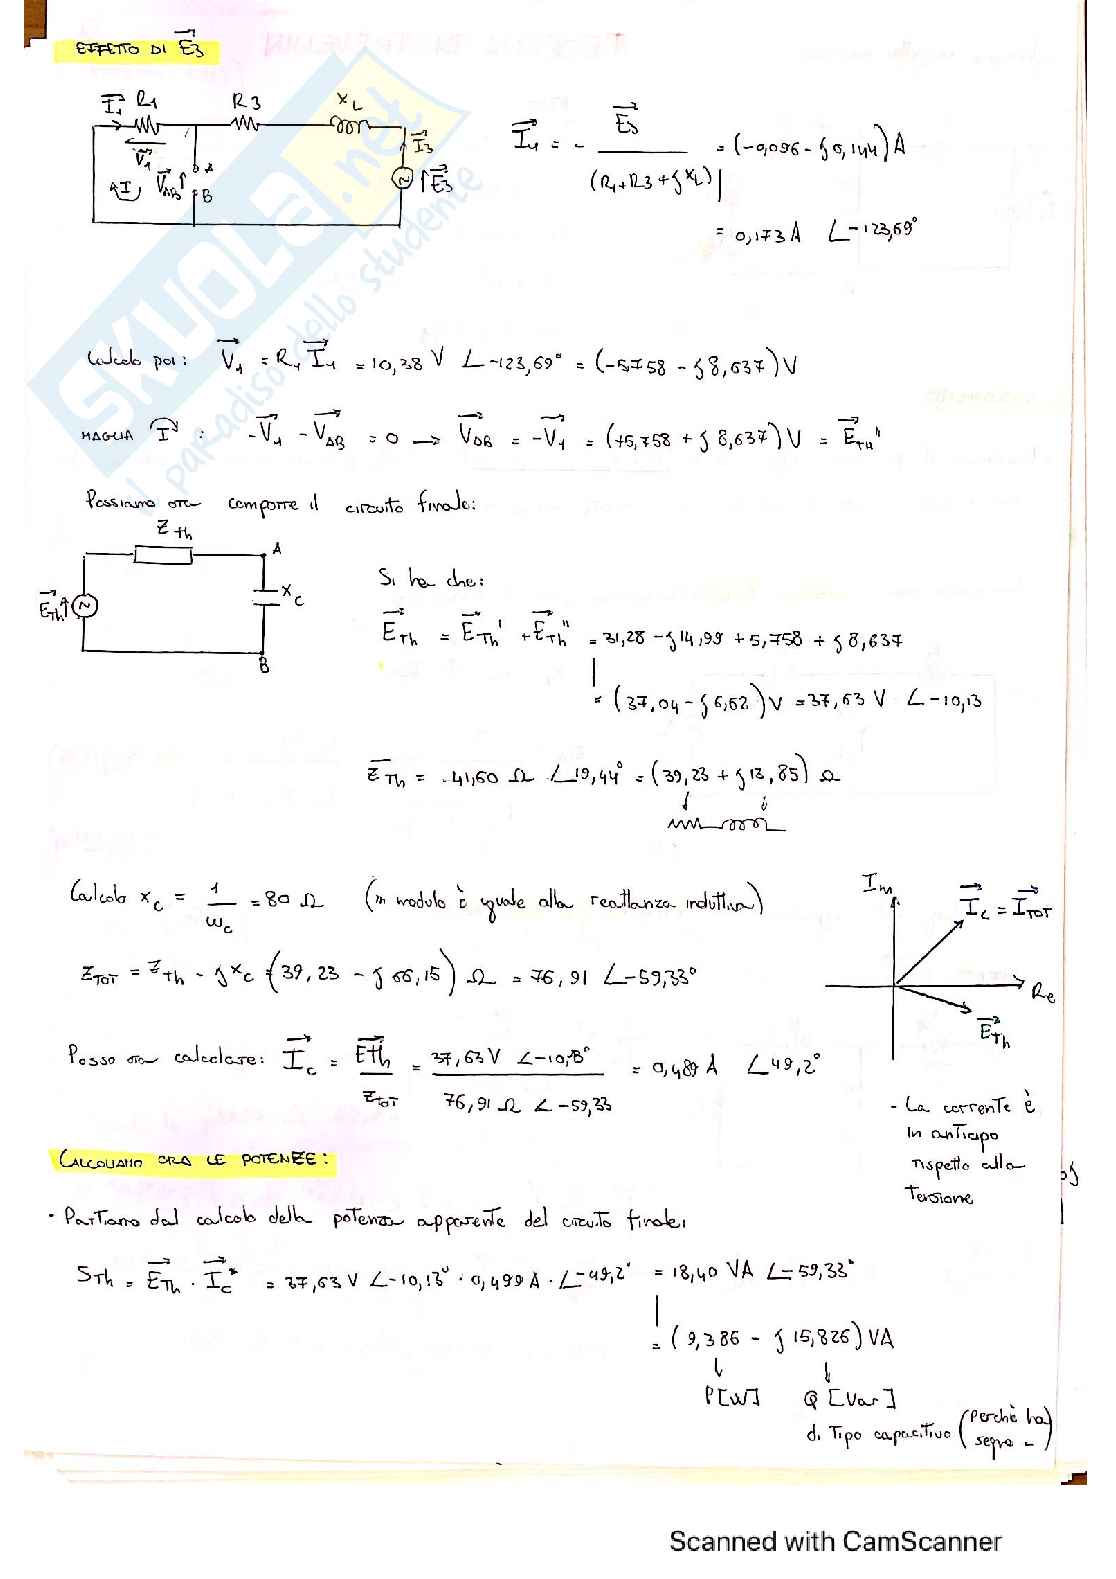 EFFETTO DI E3
I1 R1 R3 XL
V1 I3
I VAB A B E3
I1 = - E3 / (R1+R3+jXL) = (-0,096 - j0,144) A
= 0,173 A ∠-123,69°
Calcolo poi: V1 = R1 I1 = 10,38 V ∠-123,69° = (-5,758 - j8,637) V
MAGLIA I: -V1 - VAB = 0 → VAB = -V1 = (+5,758 + j8,637) V = ETh''
Possiamo ora comporre il circuito finale:
ZTh
A
ETh XC
B
Si ha che:
ETh = ETh' + ETh'' = 31,28 - j14,99 + 5,758 + j8,637
= (37,04 - j6,62) V = 37,63 V ∠-10,13
ZTh = 41,60 Ω ∠19,44° = (39,23 + j13,85) Ω
Calcolo XC = 1/ωC = 80 Ω (in modulo è uguale alla reattanza induttiva)
ZTOT = ZTh - jXC = (39,23 - j66,15) Ω = 76,91 ∠-59,33°
Im
IC = ITOT
Re
ETh
Posso ora calcolare: IC = ETh / ZTOT = 37,63 V ∠-10,13° / 76,91 Ω ∠-59,33 = 0,489 A ∠49,2°
- La corrente è
in anticipo
rispetto alla
tensione
CALCOLIAMO ORA LE POTENZE:
· Partiamo dal calcolo della potenza apparente del circuito finale:
STh = ETh · IC* = 37,63 V ∠-10,13° · 0,499 A · ∠-49,2° = 18,40 VA ∠-59,33°
= (9,386 - j15,826) VA
P [W] Q [Var]
di Tipo capacitivo (perchè ha
segno -)
SKUOLA.net
il par-adiso dello studente
Scanned with CamScanner